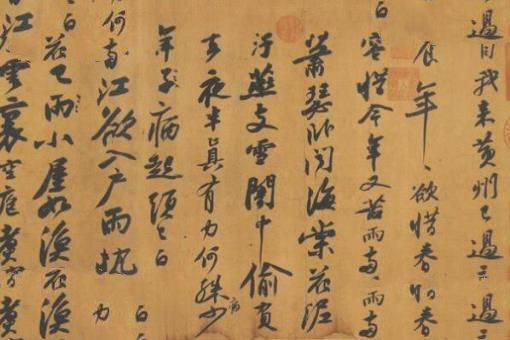 過我來黃州已過三過三
食年、欲惜春春
白容惜今年又苦雨
蕭瑟卧聞海棠花泥
汙燕支雪闇中偷負
去夜半真有力何殊少病
年子病起須已白
何江欲入戶雨力
雨小屋如漁漁
江雲裏空庖煮寒煮